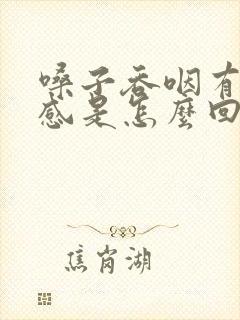 嗓子吞咽有
感是怎麼回
焦岗湖